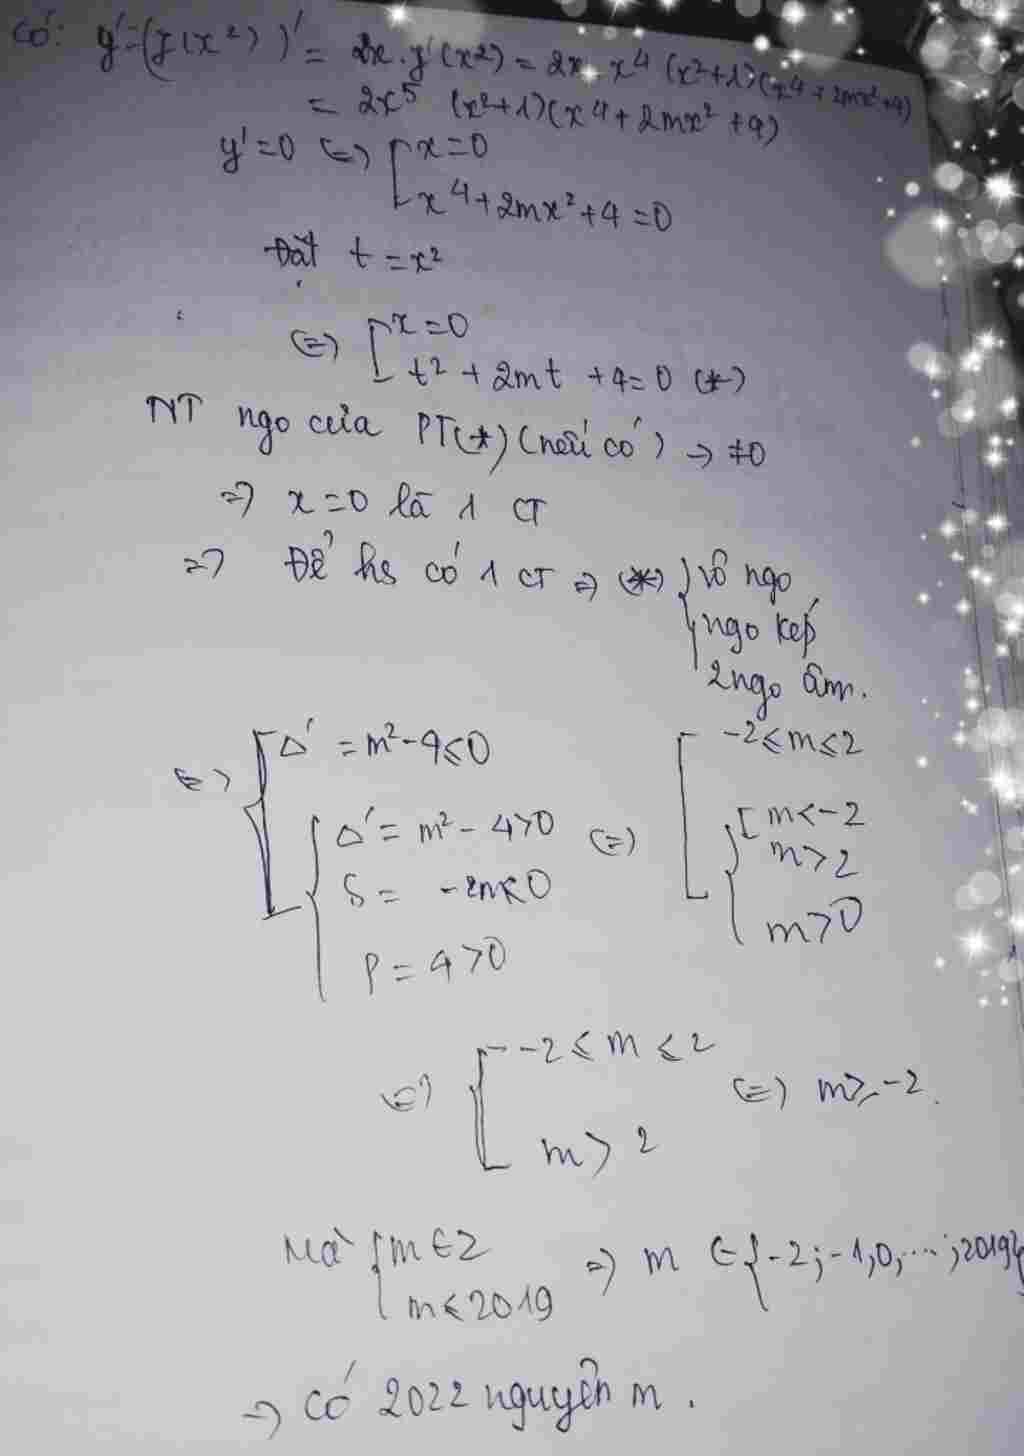 Có: y' = (f(x²))' = 2x.f'(x²) = 2x.x⁴(x²+1)(x⁴+2mx²+4)
= 2x⁵ (x²+1)(x⁴+2mx²+4)
y'=0 ⇔ [ x=0
x⁴+2mx²+4=0
Đặt t=x²
⇔ [ x=0
t²+2mt+4=0 (*)
NT ngo của PT(*) (nếu có) → ≠0
⇒ x=0 là 1 CT
⇒ Để hs có 1 CT ⇒ (*) { vô ngo
ngo kép
2ngo âm.
⇔ [ Δ' = m²-4≤0 [ -2≤m≤2
{ Δ' = m²-4>0 ⇔ { [ m<-2
m>2
S = -2m<0
P = 4>0 m>0
⇔ [ -2≤m≤2 ⇔ m≥-2.
m>2
Mà { m∈Z ⇒ m ∈{-2;-1,0,...;2019}
m≤2019
⇒ Có 2022 nguyên m.